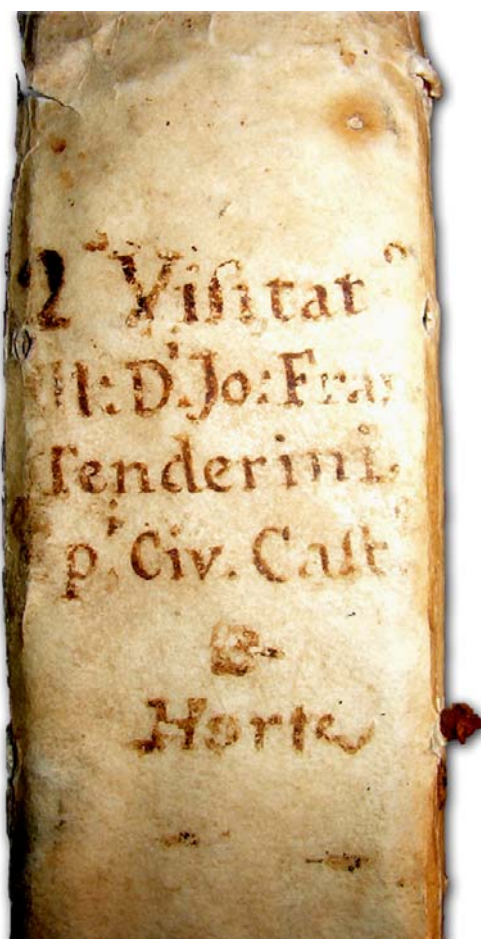 2ª Viſitatº
Ill: Dⁱ Jo: Fran
Tenderini
pⁱ Civ. Caſt.
&
Horte